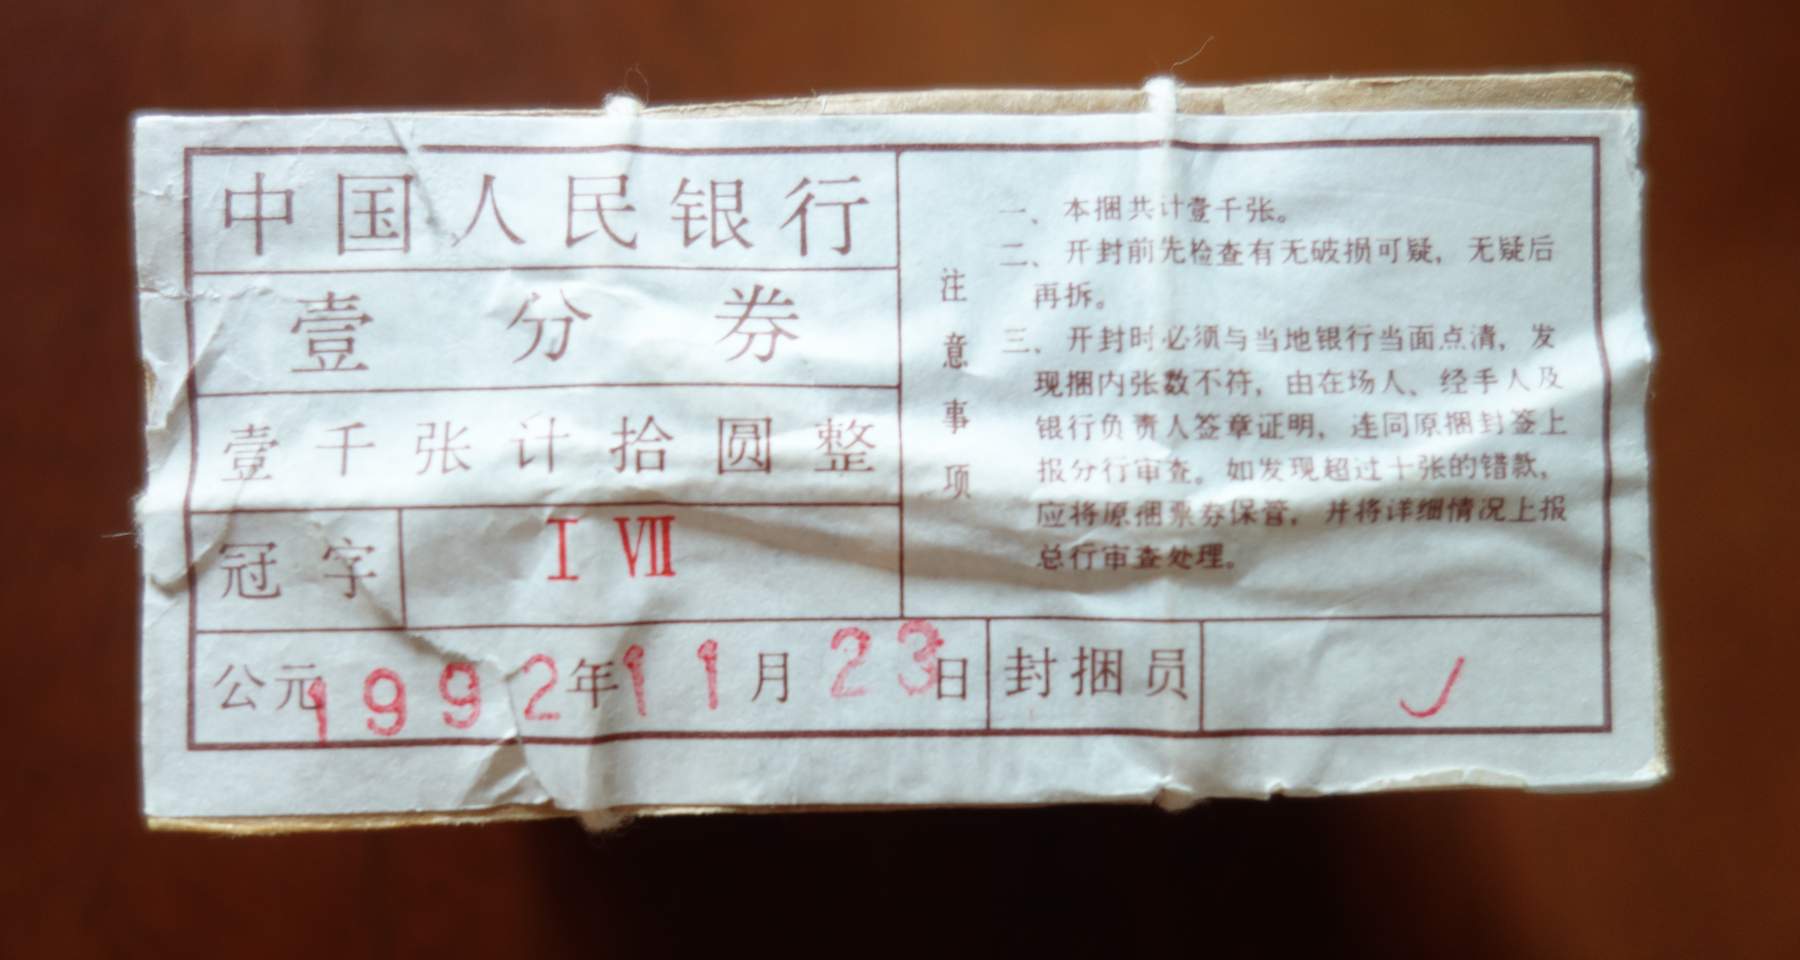 中国人民银行
壹分券
壹千张计拾圆整
冠字 I VII
公元1992年11月23日 封捆员
注意事项
一、本捆共计壹千张。
二、开封前先检查有无破损可疑，无疑后
再拆。
三、开封时必须与当地银行当面点清，发
现捆内张数不符，由在场人、经手人及
银行负责人签章证明，连同原捆封签上
报分行审查。如发现超过十张的错款，
应将原捆票券保管，并将详细情况上报
总行审查处理。